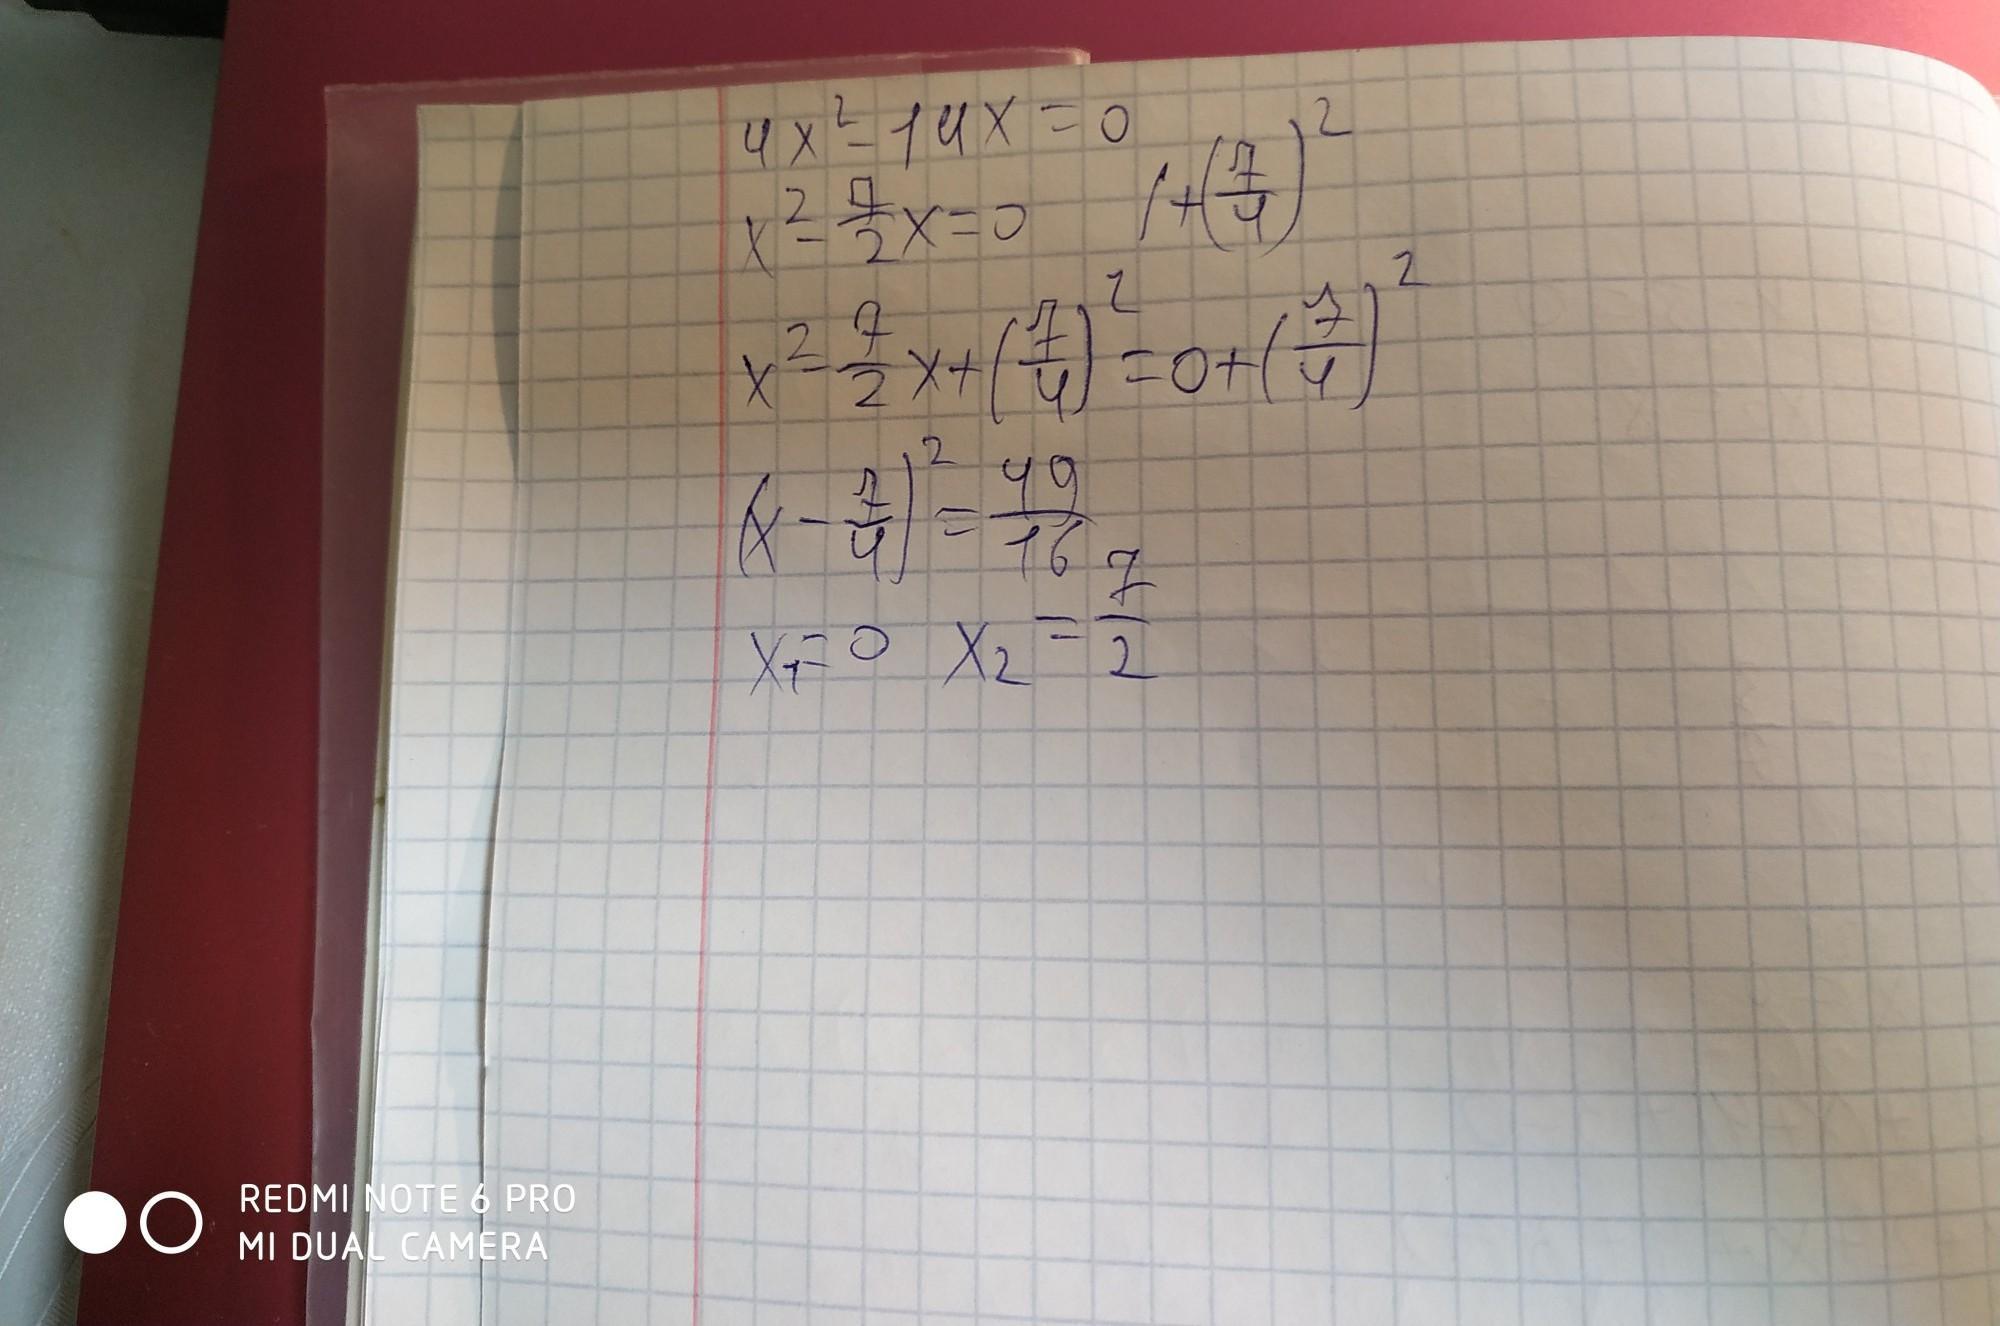 4x² - 14x = 0
x² - 7/2 x = 0 / + (7/4)²
x² - 7/2 x + (7/4)² = 0 + (7/4)²
(x - 7/4)² = 49/16
x₁ = 0 x₂ = 7/2
REDMI NOTE 6 PRO
MI DUAL CAMERA